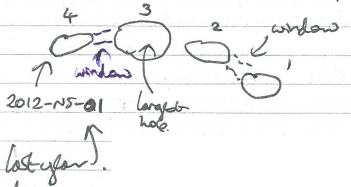 4
3
2
window
1
window
2012-NS-01
largest
hole
last year.